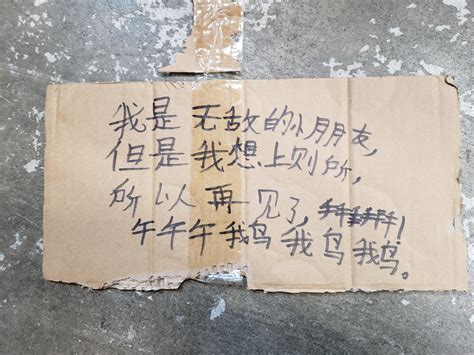 我是无敌的小朋友,
但是我想上则所,
所以再见了,!
午午午我鸟我鸟我鸟。